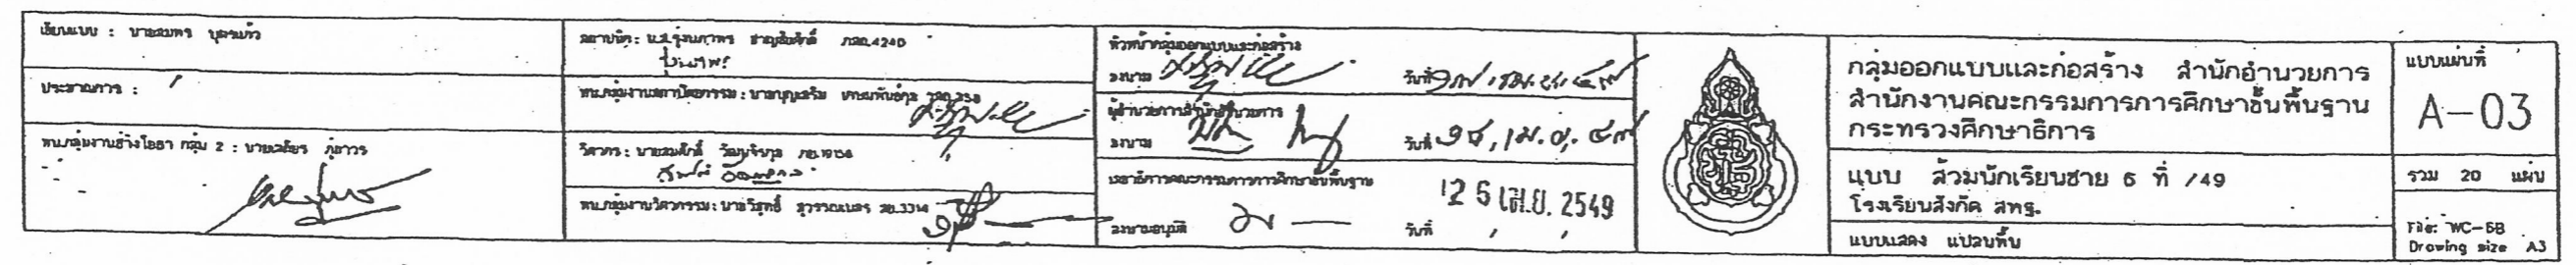 เขียนแบบ : นายสมพร บุตรแก้ว
ประมาณการ :
หน.กลุ่มงานช่างโยธา กลุ่ม 2 : นายเสถียร ภู่ถาวร
สถาปนิก : น.ส.รุ่งนภาพร ชาญชัยศักดิ์ ภสถ.4240
หน.กลุ่มงานสถาปัตยกรรม : นายบุญเสริม
วิศวกร : นายสมศักดิ์ ภย.19158
หน.กลุ่มงานวิศวกรรม : นายวิสุทธิ์ สุวรรณเนตร สย.3314
หัวหน้ากลุ่มออกแบบและก่อสร้าง
ลงนาม วันที่
ผู้อำนวยการสำนักอำนวยการ
ลงนาม วันที่ ๑๘ เม.ย. ๔๙
เลขาธิการคณะกรรมการการศึกษาขั้นพื้นฐาน
ลงนามอนุมัติ วันที่ 25 เม.ย. 2549
กลุ่มออกแบบและก่อสร้าง สำนักอำนวยการ
สำนักงานคณะกรรมการการศึกษาขั้นพื้นฐาน
กระทรวงศึกษาธิการ
แบบ ส้วมนักเรียนชาย 6 ที่ /49
โรงเรียนสังกัด สพฐ.
แบบแสดง แปลนพื้น
แบบแผ่นที่
A-03
รวม 20 แผ่น
File: WC-6B
Drawing size A3